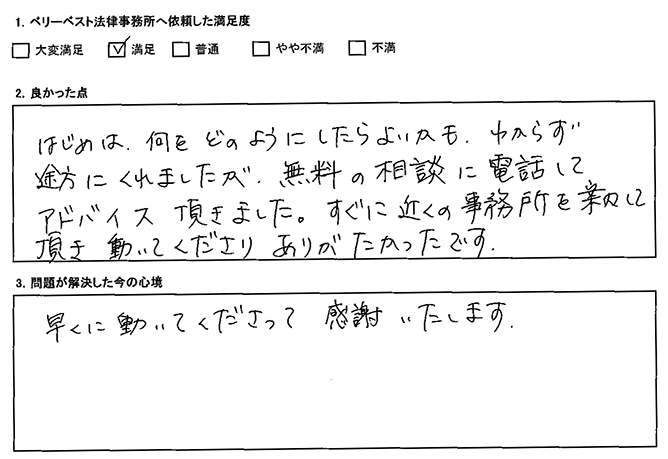 1. ベリーベスト法律事務所へ依頼した満足度
□ 大変満足 ☑ 満足 □ 普通 □ やや不満 □ 不満
2. 良かった点
はじめは、何をどのようにしたらよいかも、わからず
途方にくれましたが、無料の相談に電話して
アドバイス頂きました。すぐに近くの事務所を案内して
頂き動いてくださりありがたかったです。
3. 問題が解決した今の心境
早くに動いてくださって感謝いたします。